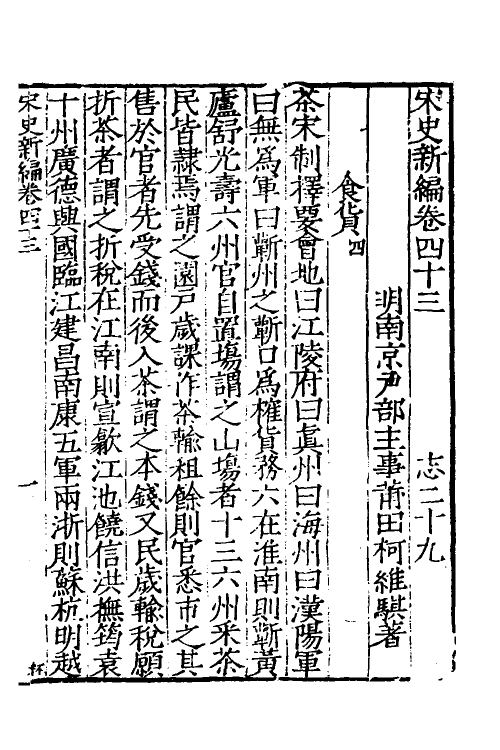 宋史新編卷四十三　志二十九
明南京戶部主事莆田柯維騏著
食貨四
茶宋制擇要會地曰江陵府曰真州曰海州曰漢陽軍
曰無爲軍曰蘄州之蘄口爲榷貨務六在淮南則蘄黃
廬舒光壽六州官自置場謂之山場者十三六州采茶
民皆隸焉謂之園戸歲課作茶輸租餘則官悉市之其
售於官者先受錢而後入茶謂之本錢又民歲輸稅願
折茶者謂之折稅在江南則宣歙江池饒信洪撫筠袁
十州廣德興國臨江建昌南康五軍兩浙則蘇杭明越
宋史新編卷四十三　一